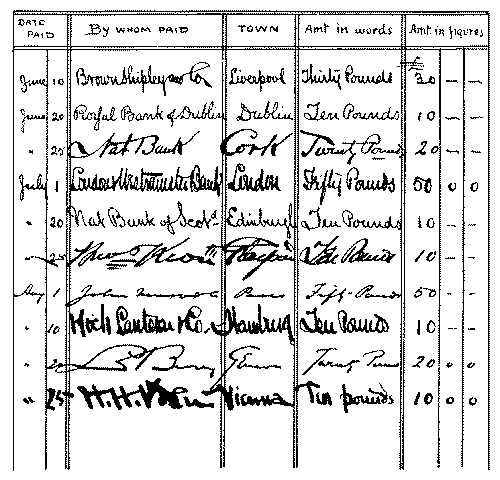 DATE PAID BY WHOM PAID TOWN Amt in words Amt in figures
June 10 Brown Shipley and Co Liverpool Thirty Pounds £ 30 — —
June 20 Royal Bank of Dublin Dublin Ten Pounds 10 — —
" 25 Nat Bank Cork Twenty Pounds 20 — —
July 1 London & Westminster Bank London Fifty Pounds 50 0 0
" 20 Nat Bank of Scot. Edinburgh Ten Pounds 10 — —
" 25 Ten Pounds 10 — —
Aug 1 John Fifty Pounds 50 - -
" 10 & Co. Hamburg Ten Pounds 10 - -
" 20 Genoa Twenty Pounds 20 0 0
" 25 H. H. Vienna Ten pounds 10 0 0